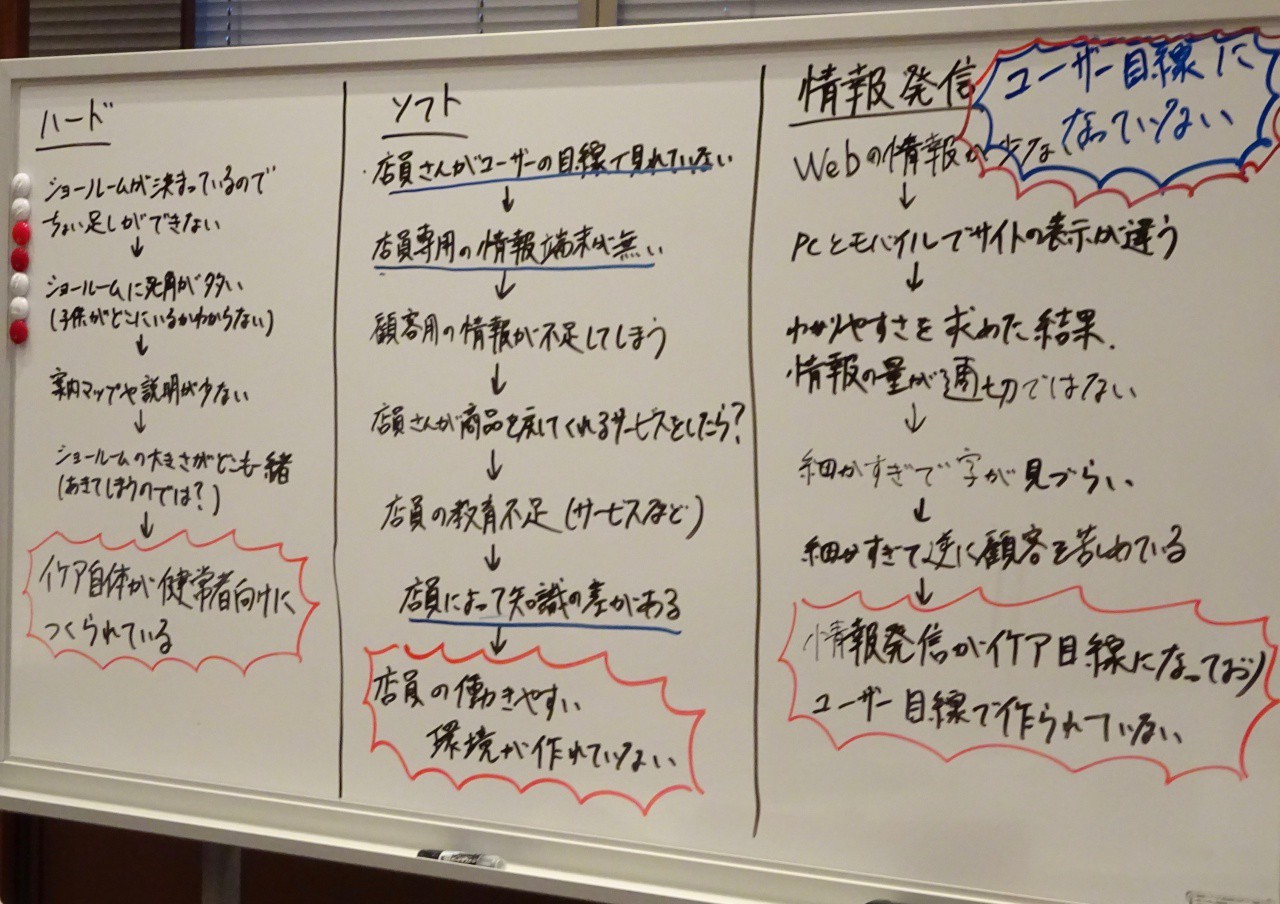 ハード
ショールームが決まっているので
ちょい足しができない
↓
ショールームに死角が多い
(子供がどこにいるかわからない)
↓
案内マップや説明が少ない
↓
ショールームの大きさがどこも一緒
(あきてしまうのでは?)
↓
イケア自体が健常者向けに
つくられている
ソフト
・店員さんがユーザーの目線で見れていない
↓
店員専用の情報端末が無い
↓
顧客用の情報が不足してしまう
↓
店員さんが商品を戻してくれるサービスをしたら?
↓
店員の教育不足(サービスなど)
↓
店員によって知識の差がある
↓
店員の働きやすい
環境が作れていない
情報発信
ユーザー目線に
なっていない
Webの情報が少な
↓
PCとモバイルでサイトの表示が違う
↓
わかりやすさを求めた結果、
情報の量が適切ではない
↓
細かすぎで字が見づらい
↓
細かすぎて逆に顧客を苦しめている
↓
情報発信がイケア目線になっており
ユーザー目線で作られていない